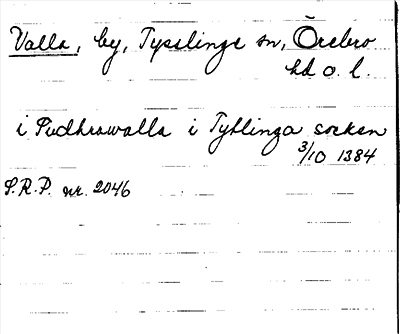 Valla, by, Tysslinge sn, Örebro
hd o. l.
i Pudhrawalla i Tyllinga sokən
3/10 1384
S.R.P. nr. 2046